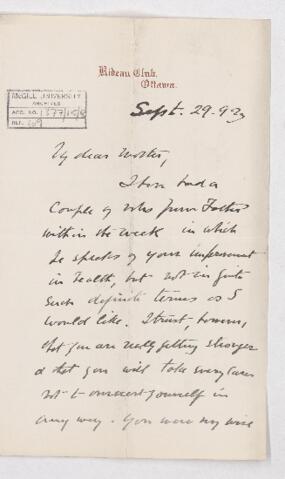 Rideau Club,
Ottawa.
McGILL UNIVERSITY
ARCHIVES
ACC. NO.
REF.
Sept. 29.923
My dear
I have had a
couple of notes from
within the week in which
he speaks of your improvement
in health, but not in quite
such definite terms as I
would like. I trust, however,
that you are really getting stronger
& that you will take every care
not to overexert yourself in
any way. You were very wise